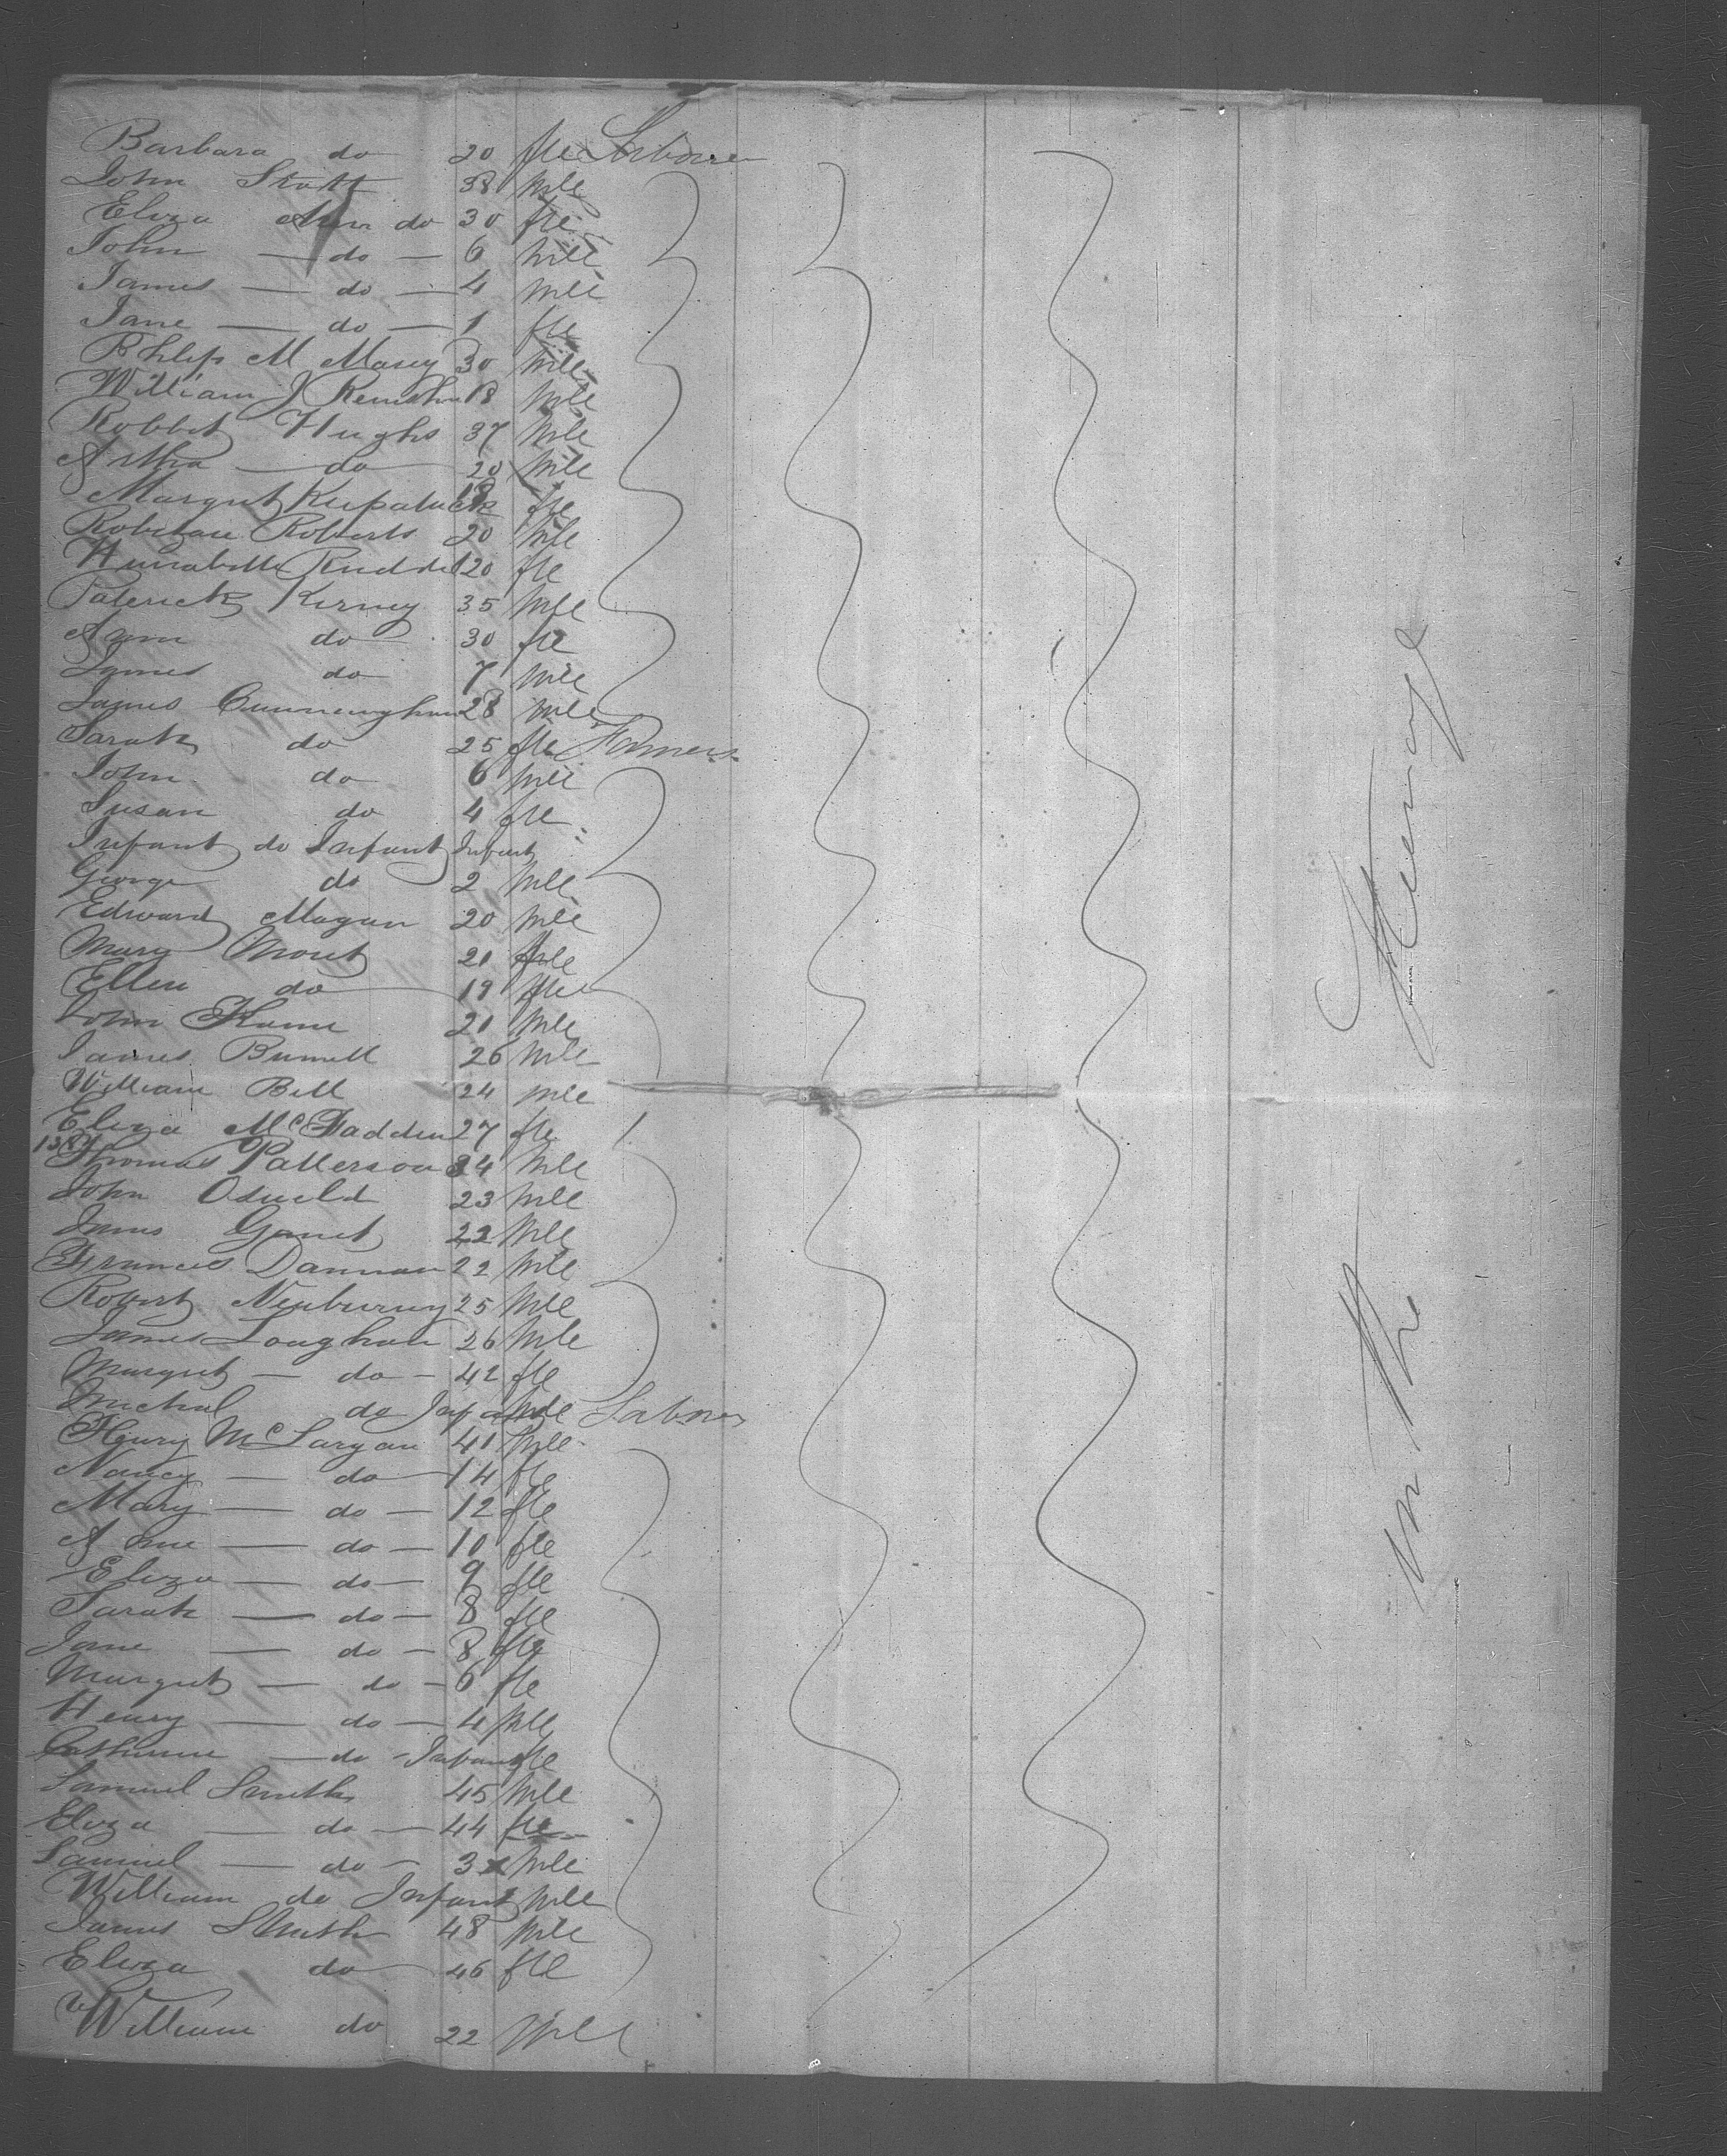 Barbara do 20 fle Laborer
John Stott 38 mle
Eliza Ann do 30 fle
John — do — 6 mle
James — do — 4 mle
Jane — do — 1 fle
M Masey 30 mle
William J 18 mle
Robbet Hughs 37 mle
do 20 mle
Margret 18 fle
Roberts 20 mle
20 fle
Paterick Kirney 35 mle
Ann do 30 fle
James do 7 mle
James Cunningham 28 mle
Sarah do 25 fle Farmers
John do 6 mle
Susan do 4 fle
Infant do Infant Infant
George do 2 mle
Edward Magan 20 mle
Mary 21 fle
Ellen do 19 fle
John 21 mle
James 26 mle
William Bell 24 mle
Eliza McFadden 27 fle
Thomas Patterson 34 mle
John 23 mle
James 22 mle
Frances Dannan 22 mle
Robert 25 mle
James Loughan 26 mle
Margret — do — 42 fle
Micheal do Infant mle Labor
Henry McLargan 41 mle
Nancy — do — 14 fle
Mary — do — 12 fle
Anne — do — 10 fle
Eliza — do — 9 fle
Sarah — do — 8 fle
Jane — do — 8 fle
Margret — do — 6 fle
Henry — do — 4 mle
Catherine — do — Infant fle
Samuel Smith 45 mle
Eliza — do — 44 fle
Samuel — do — 3 mle
William do Infant mle
James Smith 48 mle
Eliza do 46 fle
William do 22 mle
in the Steerage